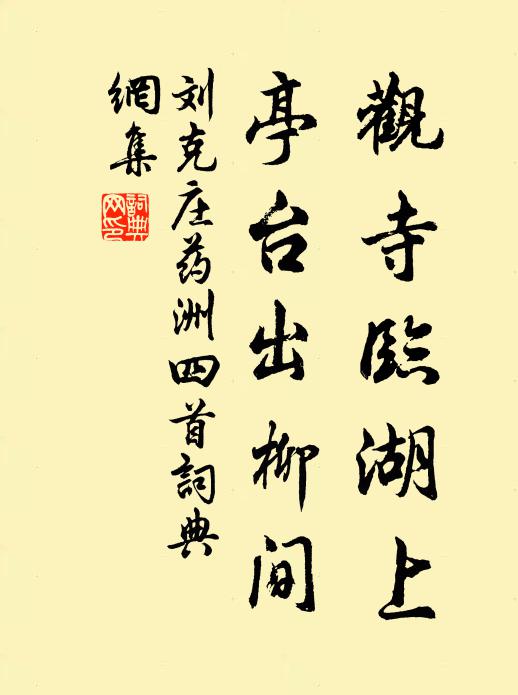 觀寺臨湖上
亭台出柳间
刘克庄药洲四首詞典
網集
詞典
网印